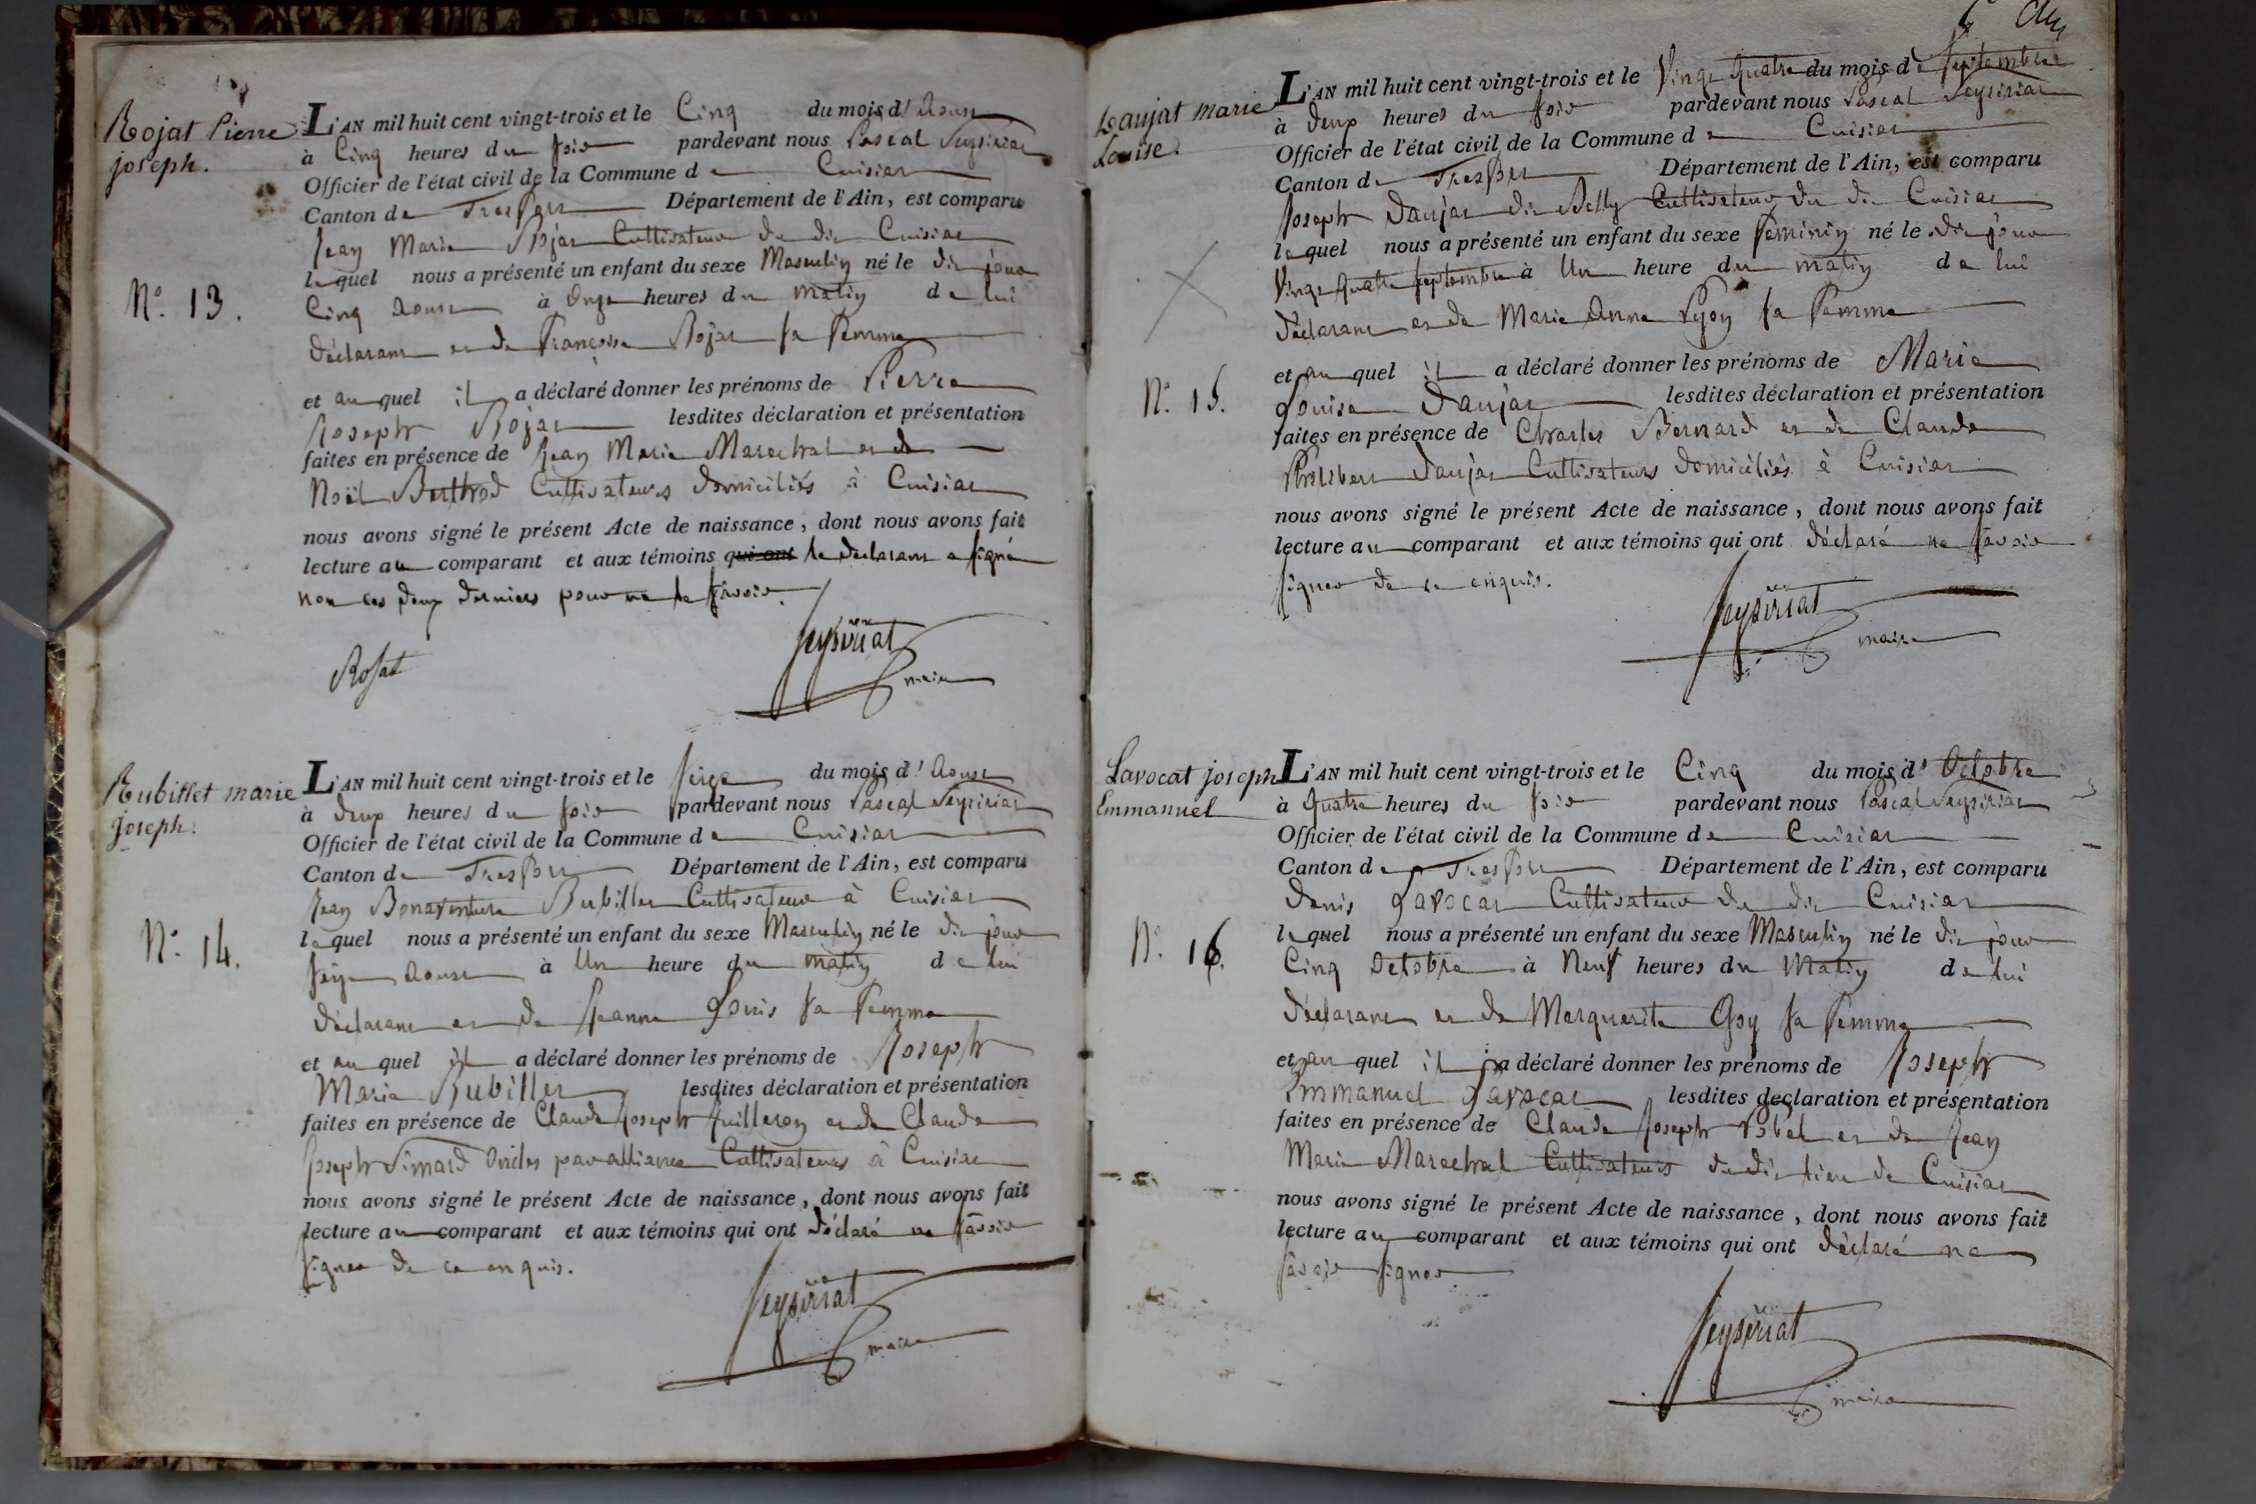 Rojat Pierre
joseph.
N.º 13.
L'AN mil huit cent vingt-trois et le Cinq du mois d'Aoust
à Cinq heures du soir pardevant nous Pascal Seysiriat
Officier de l'état civil de la Commune de Cuisiat
Canton de Treffort Département de l'Ain, est comparu
Jean Marie Rojat Cultivateur du dit Cuisiat
lequel nous a présenté un enfant du sexe Masculin né le dit jour
Cinq Aoust à Onze heures du matin de lui
déclarant et de Françoise Rojat sa femme
et auquel il a déclaré donner les prénoms de Pierre
Joseph Rojat lesdites déclaration et présentation
faites en présence de Jean Marie Marechal et de
Noël Berthod Cultivateurs domiciliés à Cuisiat
nous avons signé le présent Acte de naissance, dont nous avons fait
lecture au comparant et aux témoins qui ont le déclarant a signé
non les deux derniers pour ne le savoir.
Rojat
Seysiriat
maire
Rubillet marie
joseph.
N.º 14.
L'AN mil huit cent vingt-trois et le seize du mois d'Aoust
à deux heures du soir pardevant nous Pascal Seysiriat
Officier de l'état civil de la Commune de Cuisiat
Canton de Treffort Département de l'Ain, est comparu
Jean Bonaventure Rubillet Cultivateur à Cuisiat
lequel nous a présenté un enfant du sexe Masculin né le dit jour
seize Aoust à Un heure du matin de lui
déclarant et de Jeanne Louis sa femme
et auquel il a déclaré donner les prénoms de Joseph
Marie Rubillet lesdites déclaration et présentation
faites en présence de Claude Joseph Guilleron et de Claude
Joseph Simard Oncles par alliance Cultivateurs à Cuisiat
nous avons signé le présent Acte de naissance, dont nous avons fait
lecture au comparant et aux témoins qui ont déclaré ne savoir
signer de ce enquis.
Seysiriat
maire
Daujat marie
Louise.
N.º 15.
L'AN mil huit cent vingt-trois et le Vingt Quatre du mois de Septembre
à deux heures du soir pardevant nous Pascal Seysiriat
Officier de l'état civil de la Commune de Cuisiat
Canton de Treffort Département de l'Ain, est comparu
Joseph Daujat dit Belly Cultivateur du dit Cuisiat
lequel nous a présenté un enfant du sexe féminin né le dit jour
Vingt Quatre septembre à Un heure du matin de lui
déclarant et de Marie Anne Pyon sa femme
et auquel il a déclaré donner les prénoms de Marie
Louise Daujat lesdites déclaration et présentation
faites en présence de Charles Bernard et de Claude
Philibert Daujat Cultivateurs domiciliés à Cuisiat
nous avons signé le présent Acte de naissance, dont nous avons fait
lecture au comparant et aux témoins qui ont déclaré ne savoir
signer de ce enquis.
Seysiriat
maire
Lavocat joseph
Emmanuel
N.º 16.
L'AN mil huit cent vingt-trois et le Cinq du mois d'Octobre
à Quatre heures du soir pardevant nous Pascal Seysiriat
Officier de l'état civil de la Commune de Cuisiat
Canton de Treffort Département de l'Ain, est comparu
Denis Lavocat Cultivateur du dit Cuisiat
lequel nous a présenté un enfant du sexe Masculin né le dit jour
Cinq Octobre à Neuf heures du Matin de lui
déclarant et de Marguerite Goy sa femme
et auquel il a déclaré donner les prénoms de Joseph
Emmanuel Lavocat lesdites declaration et présentation
faites en présence de Claude Joseph Vobel et de Jean
Marie Marechal Cultivateurs du dit lieu de Cuisiat
nous avons signé le présent Acte de naissance, dont nous avons fait
lecture au comparant et aux témoins qui ont déclaré ne
savoir signer
Seysiriat
maire